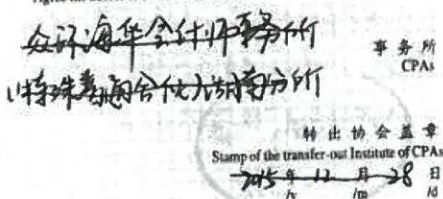 众环海华会计师事务所
事务所
CPAs
(特殊普通合伙)湖南分所
转出协会盖章
Stamp of the transfer-out Institute of CPAs
2015 年 12 月 28 日
/y /m /d